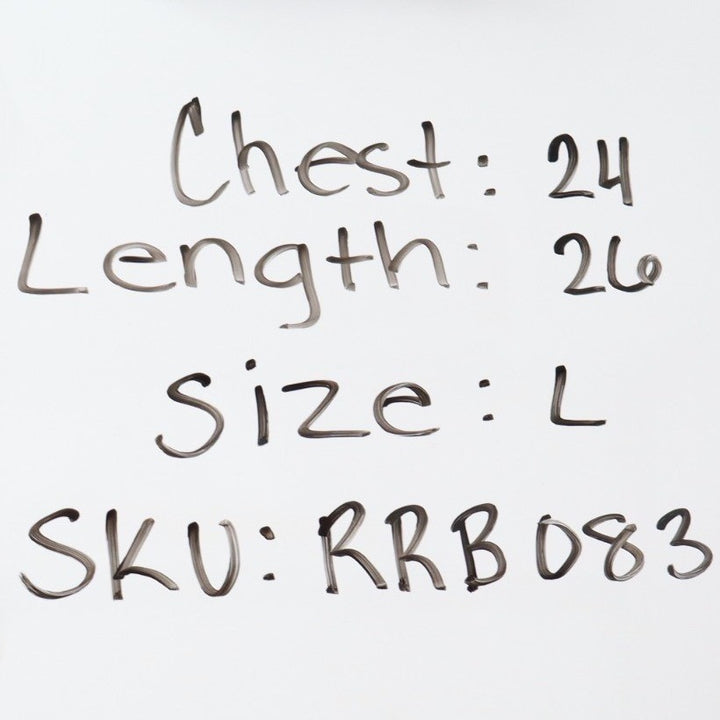 Chest: 24
Length: 26
Size: L
SKU: RRB083